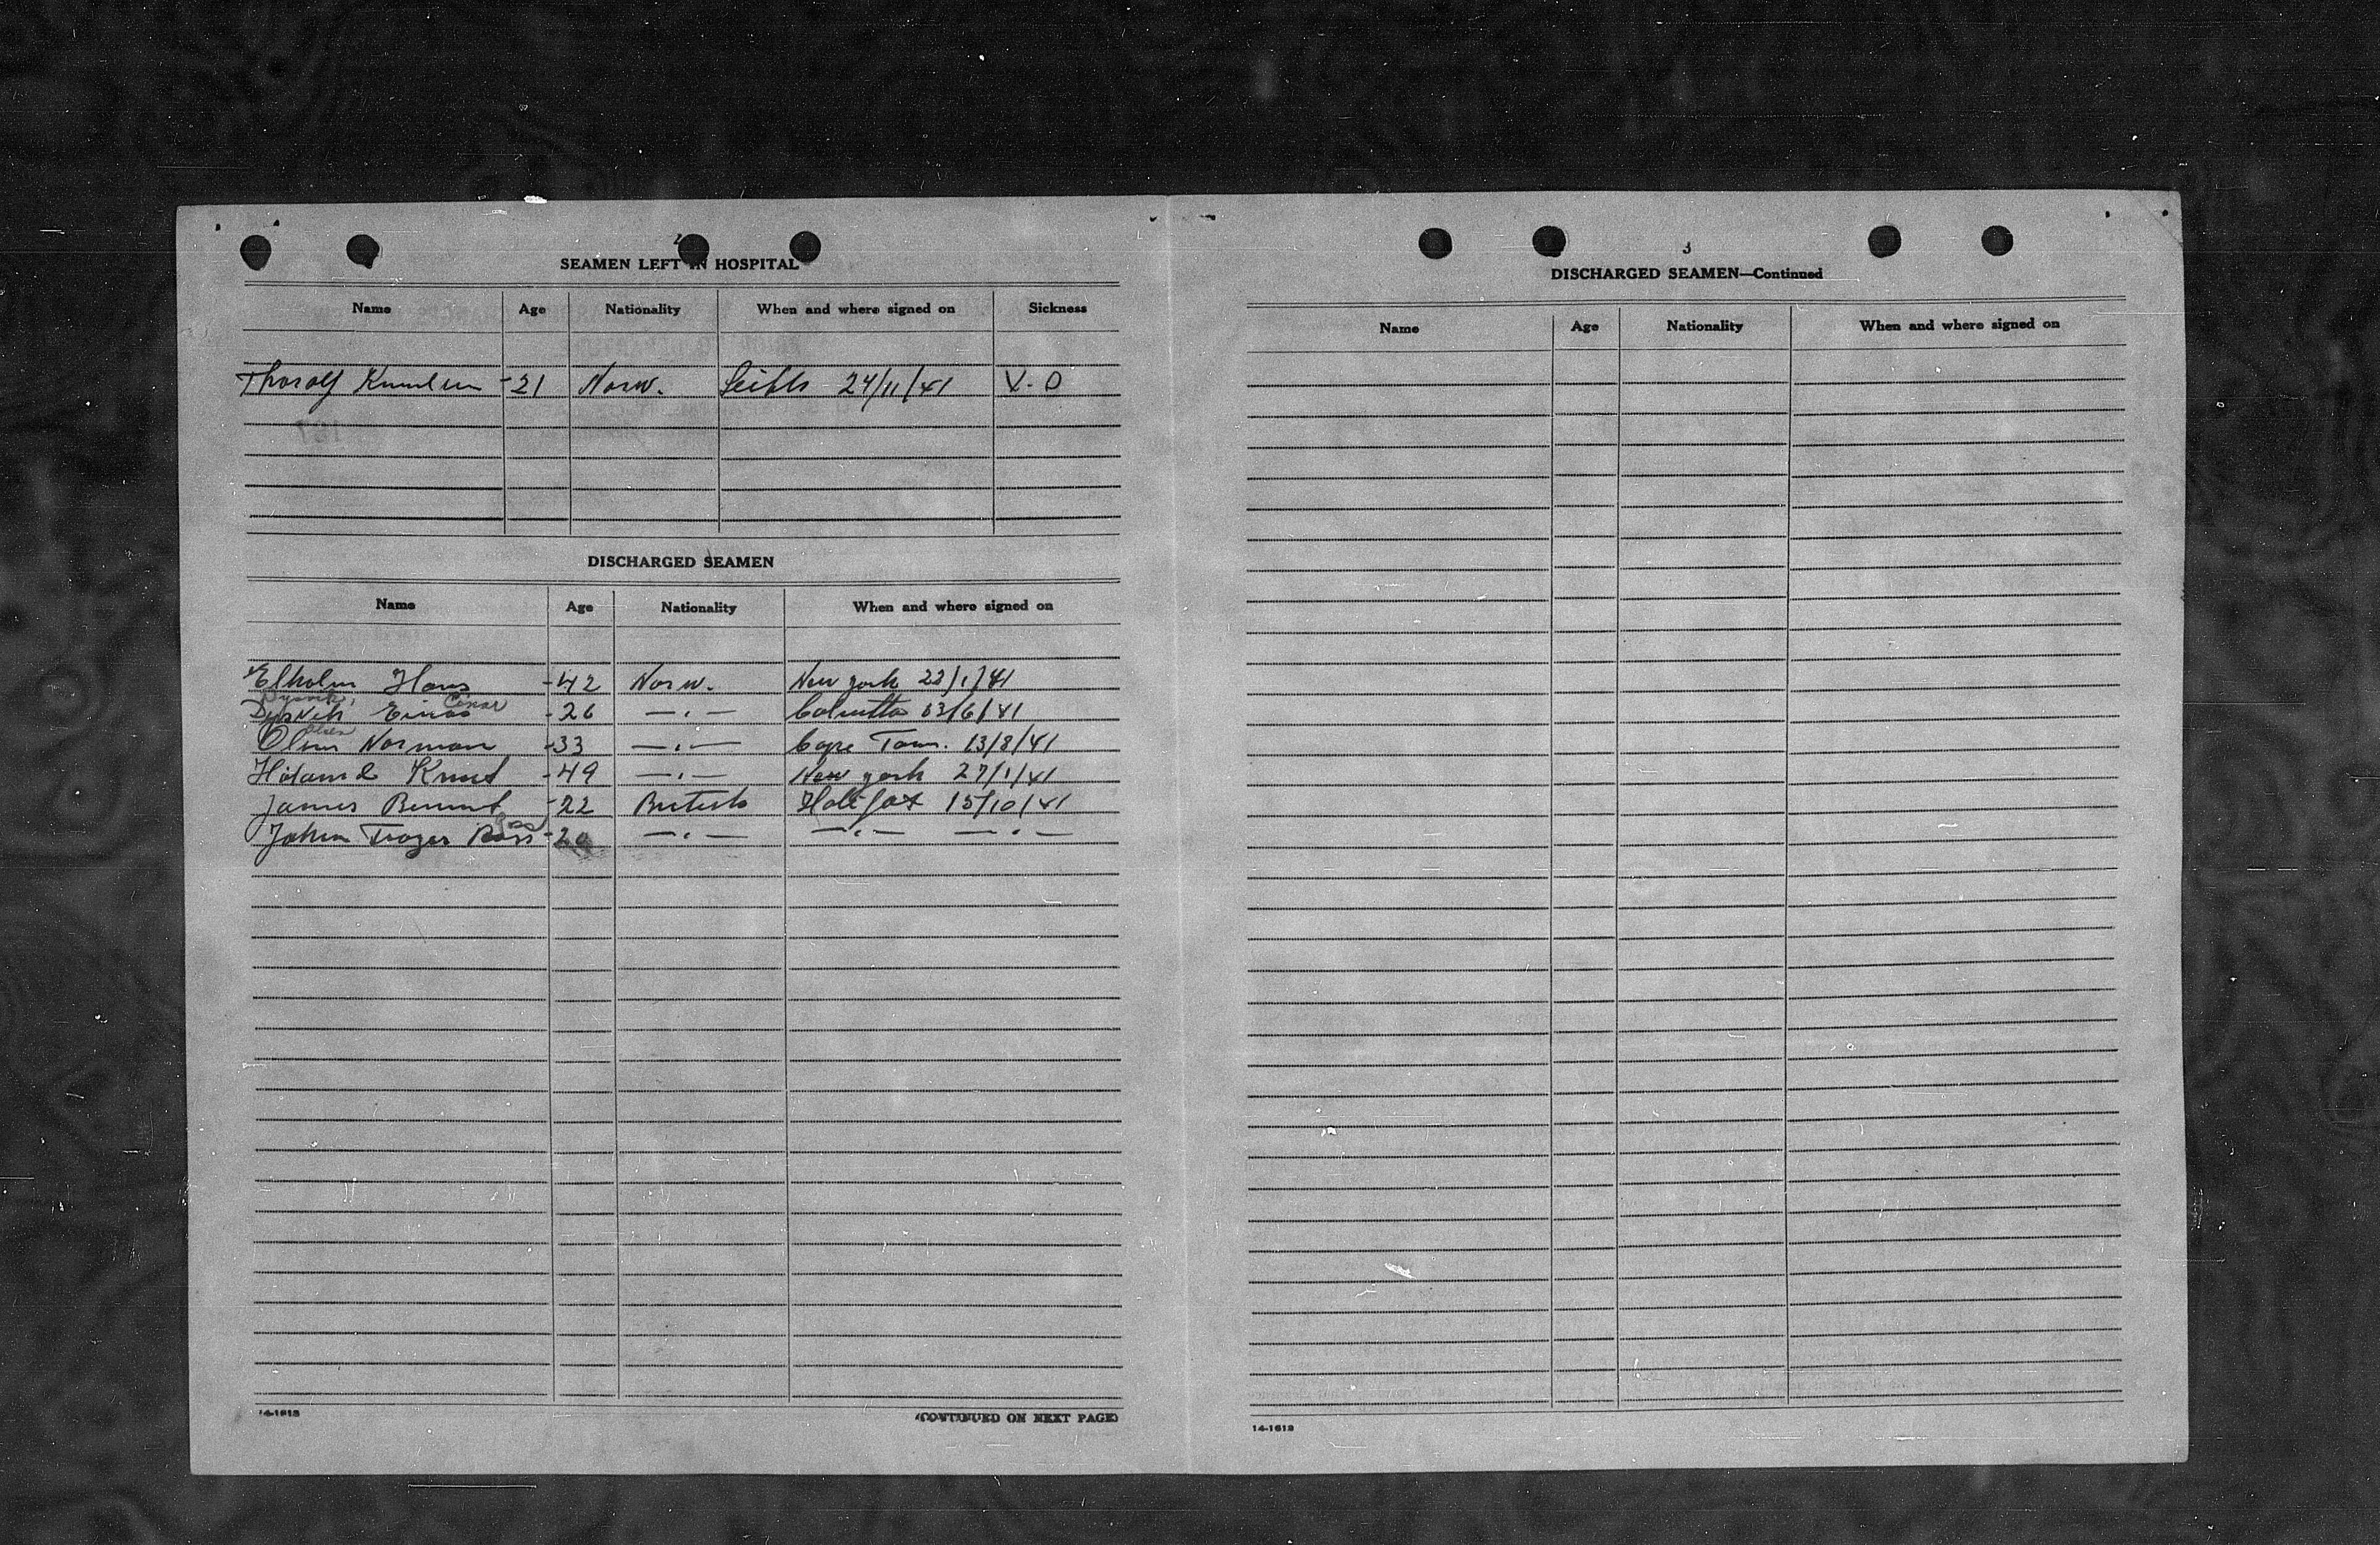 2
SEAMEN LEFT IN HOSPITAL
Name Age Nationality When and where signed on Sickness
Thoralf -21 Norw. 24/11/41 V.D
DISCHARGED SEAMEN
Name Age Nationality When and where signed on
Elholm Hans -42 Norw. New york 22/1/41
Einar
-26 —〃— Calcutta 13/6/41
Olsen
Olsen Norman -33 —〃— Cape Town. 13/8/41
Knut -49 —〃— New york 27/1/41
James -22 British Halifax 15/10/41
Ross
Ross —〃— —〃— —〃—
14-1613
(CONTINUED ON NEXT PAGE)
3
DISCHARGED SEAMEN—Continued
Name Age Nationality When and where signed on
14-1613